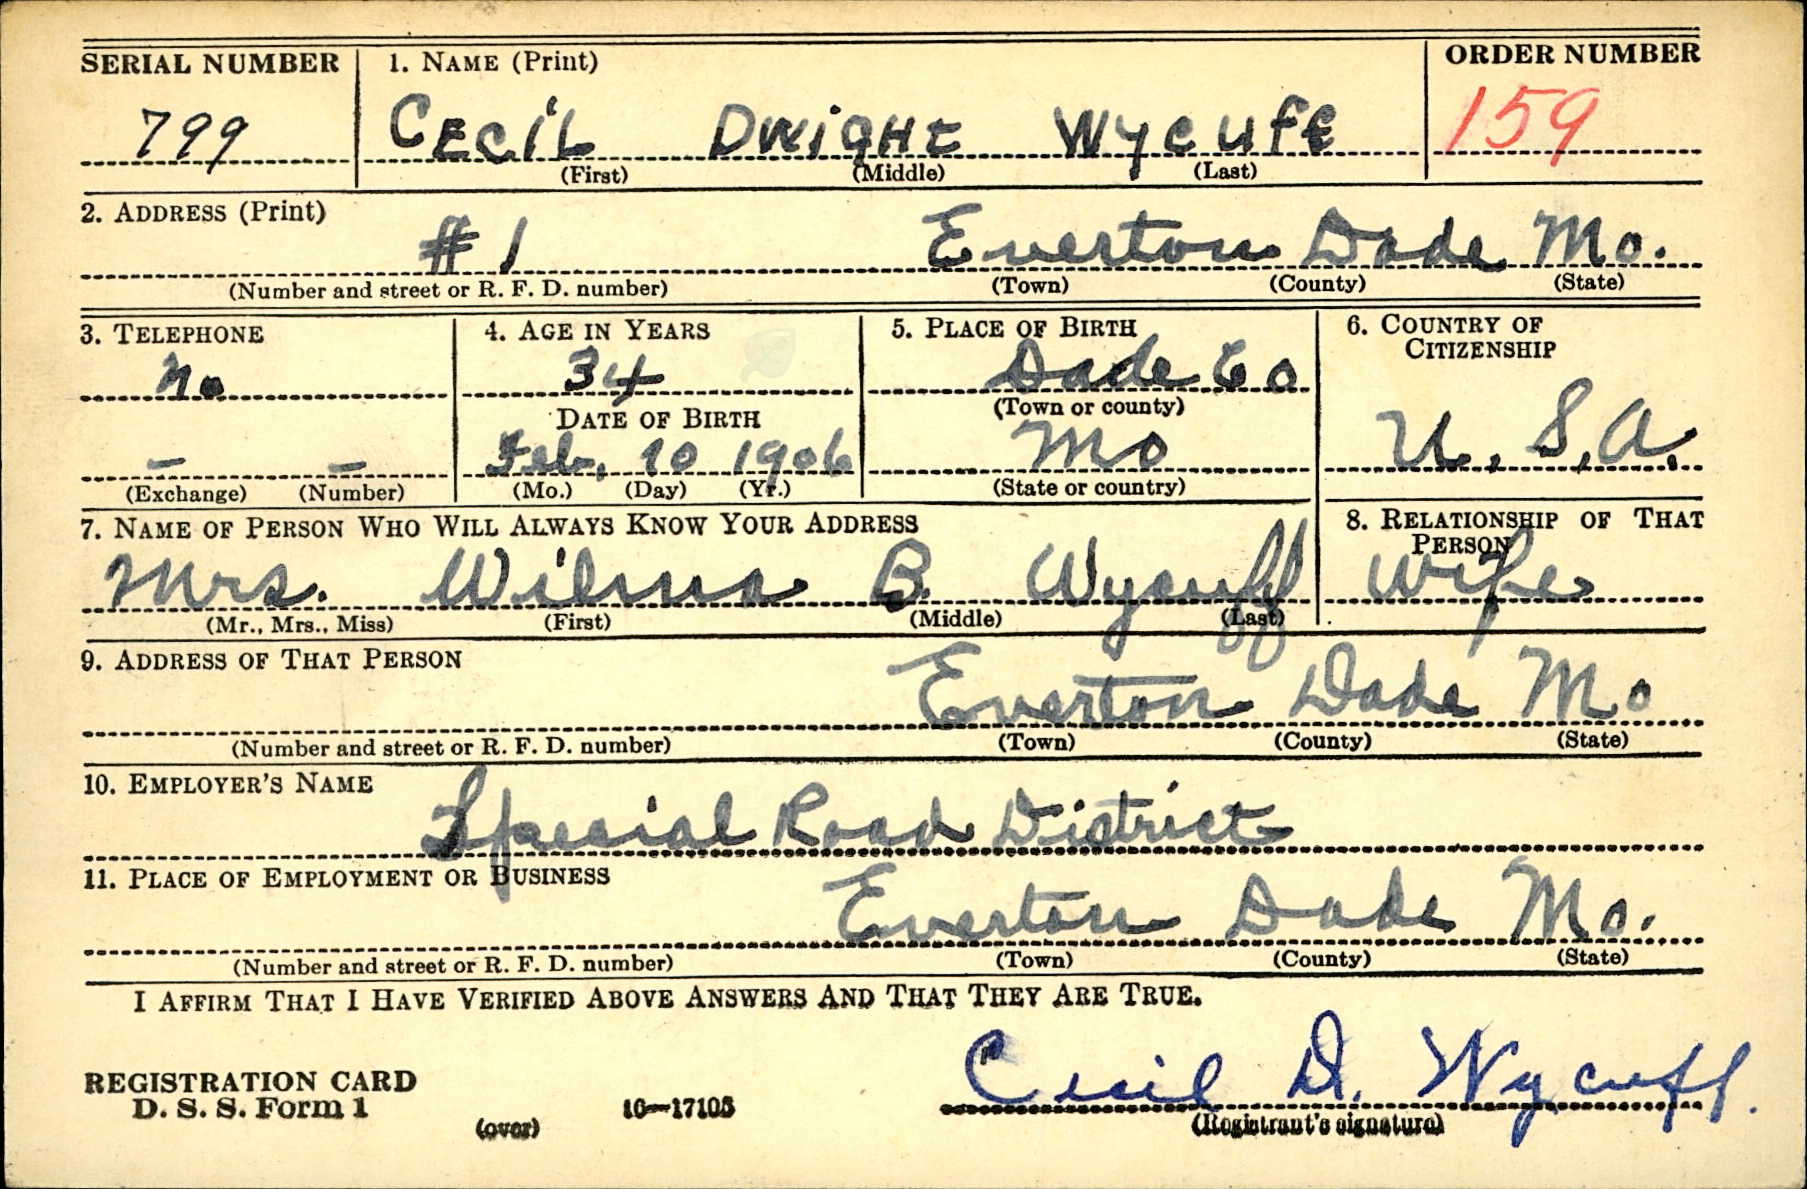 SERIAL NUMBER 1. NAME (Print) ORDER NUMBER
799 CECIL DWIGHT WYCUFF 159
(First) (Middle) (Last)
2. ADDRESS (Print)
#1 Everton Dade Mo.
(Number and street or R. F. D. number) (Town) (County) (State)
3. TELEPHONE 4. AGE IN YEARS 5. PLACE OF BIRTH 6. COUNTRY OF
CITIZENSHIP
No 34 Dade Co
DATE OF BIRTH (Town or county)
– – Feb. 10 1906 Mo U.S.A.
(Exchange) (Number) (Mo.) (Day) (Yr.) (State or country)
7. NAME OF PERSON WHO WILL ALWAYS KNOW YOUR ADDRESS 8. RELATIONSHIP OF THAT
PERSON
Mrs. Wilma B. Wycuff Wife
(Mr., Mrs., Miss) (First) (Middle) (Last)
9. ADDRESS OF THAT PERSON
Everton Dade Mo
(Number and street or R. F. D. number) (Town) (County) (State)
10. EMPLOYER'S NAME
Special Road District
11. PLACE OF EMPLOYMENT OR BUSINESS
Everton Dade Mo.
(Number and street or R. F. D. number) (Town) (County) (State)
I AFFIRM THAT I HAVE VERIFIED ABOVE ANSWERS AND THAT THEY ARE TRUE.
Cecil D. Wycuff.
REGISTRATION CARD
D. S. S. Form 1 16—17105 (Registrant's signature)
(over)